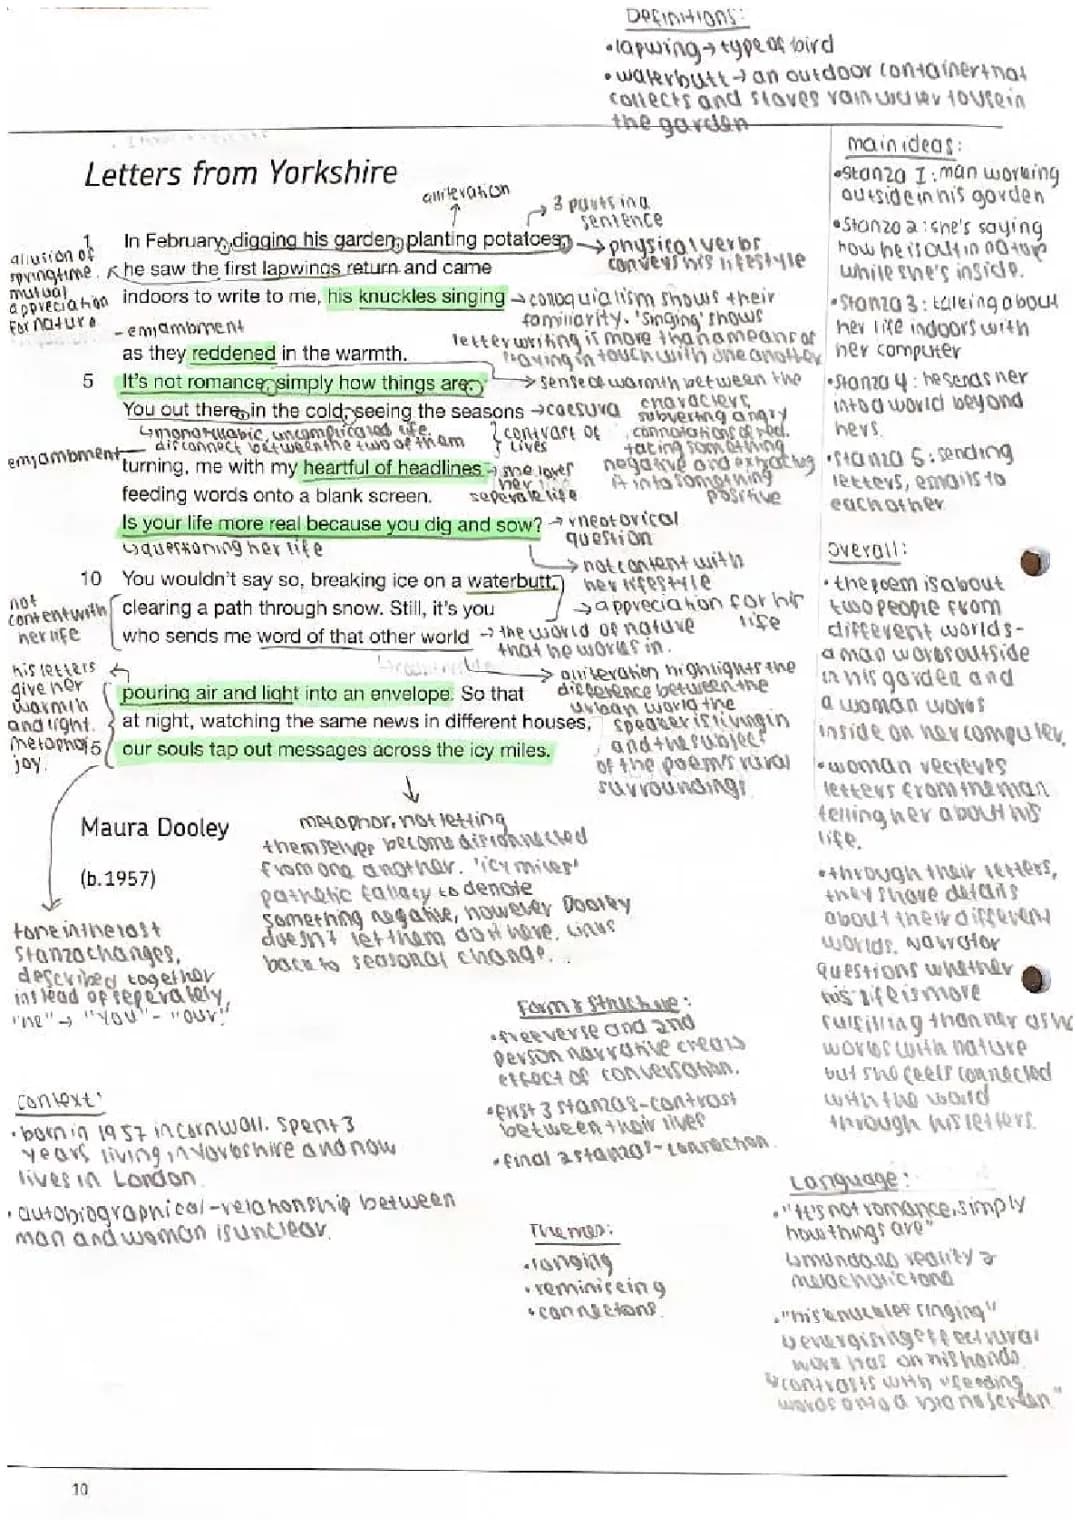 Definitions:
•lapwing→type of bird
•waterbutt→an outdoor container that
collects and stores rain water to use in
the garden
Letters from Yorkshire
alliteration
3 parts in a
sentence
1 In February, digging his garden, planting potatoes,
→physical verbs
conveys his lifestyle
allusion of
springtime.
mutual
appreciation
for nature
he saw the first lapwings return and came
indoors to write to me, his knuckles singing
→colloquialism shows their
familiarity. 'singing' shows
letter writing is more than a means of
having in touch with one another
- emjambment
as they reddened in the warmth.
→sense of warmth between the
characters,
subverting angry
connotations of red.
taking something
negative and
it into something
positive
5 It's not romance, simply how things are.
You out there, in the cold, seeing the seasons
→caesura
↳monosyllabic, uncomplicated life.
disconnect between the two of them
contrast of
lives
emjambment
turning, me with my heartful of headlines
→she loves
her life
seperate life
feeding words onto a blank screen.
Is your life more real because you dig and sow?
→rhetorical
question
↳questioning her life
→not content with
her lifestyle
10 You wouldn't say so, breaking ice on a waterbutt,
→appreciation for his
life
not
content with
her life
clearing a path through snow. Still, it's you
who sends me word of that other world
→the world of nature
that he works in.
his letters
give her
warmth
and light.
metaphor
joy.
→alliteration highlights the
difference between the
urban world the
speaker is living in
and the subject
of the poem's rural
surroundings
pouring air and light into an envelope. So that
at night, watching the same news in different houses,
15 our souls tap out messages across the icy miles.
Maura Dooley
(b.1957)
metaphor, not letting
themselves become disconnected
from one another. 'icy miles'
pathetic fallacy to denote
something negative, however Dooley
doesn't let them
back to seasonal change.
tone in the last
stanza changes,
described together
instead of seperately,
"me"→ "You"- "our"
Context:
•born in 1957 in Cornwall. Spent 3
years living in Yorkshire and now
lives in London
•autobiographical-relationship between
man and woman is unclear.
Form & Structure:
•freeverse and 2nd
person narrative creats
effect of conversation.
•first 3 stanzas-contrast
between their lives
•final 2 stanzas-connection.
Themes:
•longing
•reminiscing
•connections
main ideas:
•Stanza 1: man working
outside in his garden
•Stanza 2: she's saying
how he is out in nature
while she's inside.
•Stanza 3: talking about
her life indoors with
her computer
•Stanza 4: he sends her
into a world beyond
hers.
•Stanza 5: sending
letters, emails to
each other
Overall:
•the poem is about
two people from
different worlds-
a man works outside
in his garden and
a woman works
inside on her computer.
•woman recieves
letters from the man
telling her about his
life.
•through their letters,
they share details
about their different
worlds. Narrator
questions whether
his life is more
fulfilling than her as he
works with nature
but she feels connected
with the world
through his letters.
Language:
•"It's not romance, simply
how things are"
↳mundane reality &
melancholic tone
•"his knuckles singing"
↳energising effect rural
work has on his hands
↳contrasts with "feeding
words onto a blank screen"
10